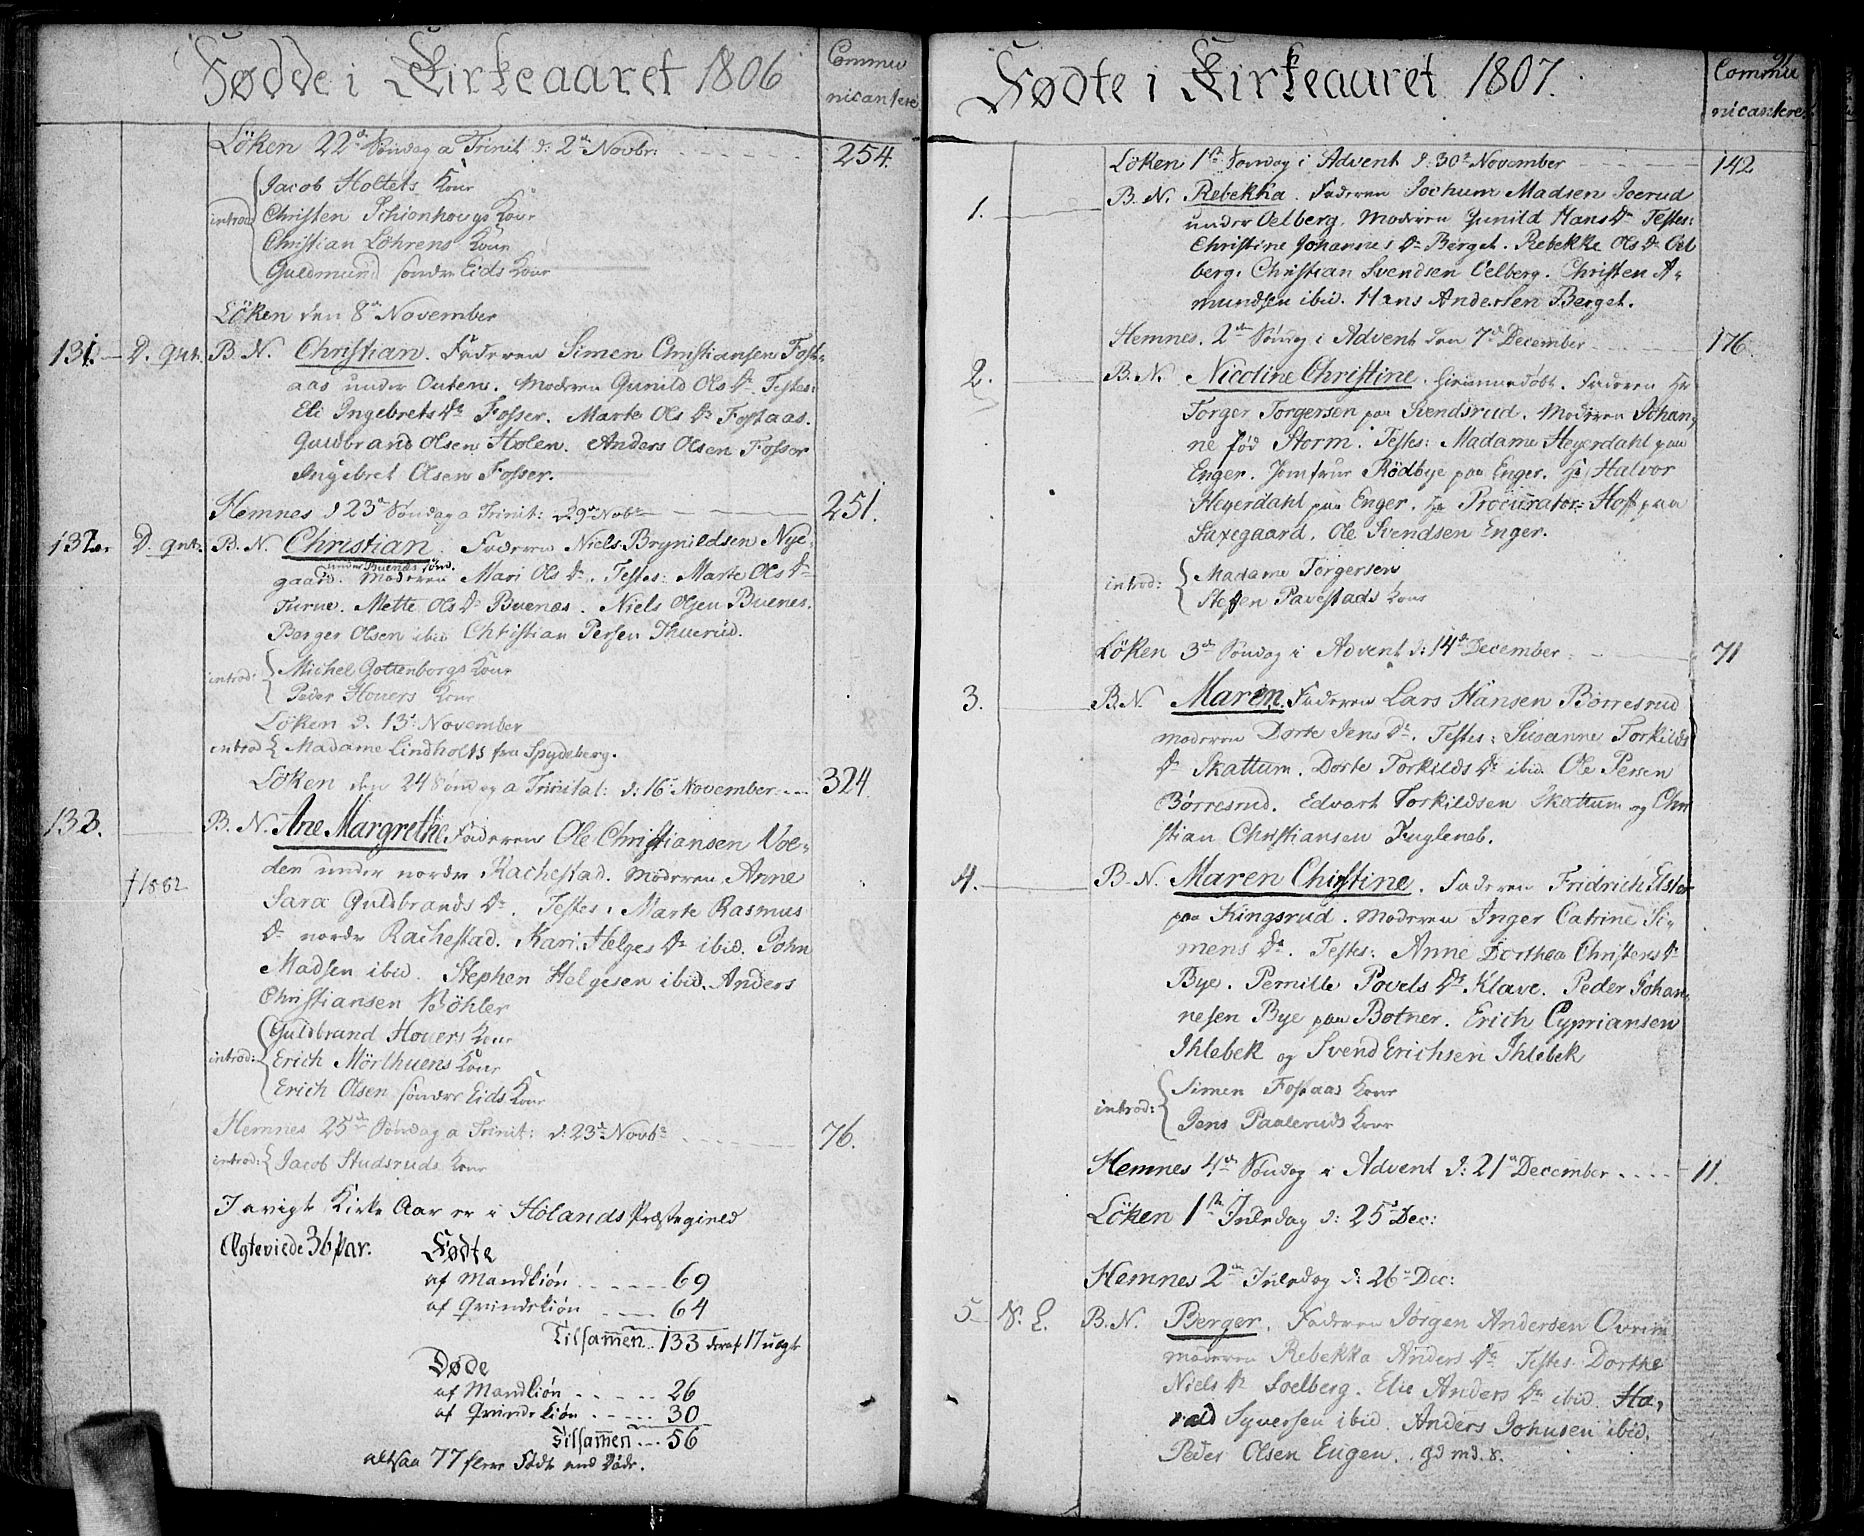 Fødde i Kirkeaaret 1806
Commu
nicantere
Löken 22de Søndag a Trinit d: 2den Novbr: 254
introd: Jacob Holtets Kone
Christen Schionhougs Kone
Christian Löhrens Kone
Guldmund søndre Eids Kone
Löken den 8de November
131. D. gnt. B. N. Christian. Faderen Simen Christiansen Fos-
aas under Outen. Moderen Gunild Ols Dr. Testes:
Eli Ingebrets Dr Fosser. Marte Ols Dr Fossaas.
Guldbrand Olsen Holen. Anders Olsen Fosser
Ingebret Olsen Fosser.
Hemnes d 23de Søndag a Trinit: d. 9de Novbr 251.
132. D. gnt. B. N. Christian. Faderen Niels Brynildsen Nye-
under Buenæs sønd.
gaard. Moderen Mari Ols Dr. Testes: Marte Ols Dr
Turne. Mette Ols Dr Buenæs. Niels Olsen Buenes.
Berger Olsen ibid Christian Persen Thuerud.
introd: Michel Gottenborgs Kone
Peder Houers Kone
Löken d. 13de November
introd Madame Lindholts fra Spydeberg.
Löken den 24 Søndag a Trinitat: d: 16de November 324
133. B. N. Ane Margrethe Faderen Ole Christiansen Voe-
den under nordre Rachestad. Moderen Anne
†1882 Sara Guldbrands Dr. Testes: Marte Rasmus
Dr nordre Rachestad. Kari Helges Dr ibid. John
Madsen ibid. Stephen Helgesen ibid. Anders
Christiansen Böhler
introd: Guldbrand Houers Kone
Erich Mörthuens Kone
Erich Olsen søndre Eids Kone
Hemnes 25de Søndag a Trinit: d: 23de Novbr 76.
introd: Jacob Studsruds Kone
I avigt Kirke Aar er i Hølands Præstegield
Ægteviede 36 Par. Fødte
af Mandkiøn 69
af Qvindekiøn 64
Tilsammen 133 deraf 17 uægte
Døde
af Mandkiøn 26
af Qvindekiøn 30
Tilsammen 56
altsaa 77 flere Fødte end Døde.
Fødte i Kirkeaaret 1807.
91
Commu
nicantere
Löken 1ste Søndag i Advent d: 30te November 142
1. B. N. Rebekka. Faderen Jochum Madsen Joerud
under Oelberg. Moderen Gunild Hans Dr Testes:
Christine Johannes Dr Berget. Rebekke Ols Dr Oel
berg. Christian Svendsen Oelberg. Christen A-
mundsen ibid. Hans Andersen Berget.
Hemnes. 2den Søndag i Advent den 7de December 176.
2. B. N. Nicoline Christine. hiemmedöbt. Faderen Hr
Torger Torgersen paa Svendsrud. Moderen Johan-
ne fød Storm. Testes: Madame Heyerdahl paa
Enger. Jomfrue Rödbye paa Enger. Hr Halvor
Heyerdahl paa Enger. Hr Procurator Hoff paa
Saxegaard. Ole Svendsen Enger.
introd: Madame Torgersen
Steffen Pavestads Kone
Löken 3die Søndag i Advent d: 14de December 71
3. B. N. Maren. Faderen Lars Hansen Börresrud
Moderen Dorte Jens Dr. Testes: Susanne Torkilds
Dr Skattum. Dorte Torkilds Dr ibid Ole Persen
Börresrud. Edvart Torkildsen Skattum og Chri
stian Christiansen Fugleneb.
4. B. N. Maren Christine. Faderen Fridrich Elster
paa Kingsrud. Moderen Inger Catrine Si-
mens Dr. Testes: Anne Dorthea Christens Dr
Bye. Pernille Povels Dr Klave. Peder Johan-
nesen Bye paa Botner. Erich Cypriansen
Ihlebek og Svend Erichsen Ihlebek
introd: Simen Fossaas Kone
Jens Paaleruds Kone
Hemnes 4de Søndag i Advent d: 21de December 11.
Löken 1ste Juledag d: 25de Dec:
Hemnes 2den Juledag d: 26de Dec:
5 S. L. B. N. Berger. Faderen Jørgen Andersen Ovrim
Moderen Rebekka Anders Dr Testes: Dorthe
Niels Dr Soelberg. Elie Anders Dr ibid. Ha-
rald Syversen ibid. Anders Johnsen ibid.
Peder Olsen Eugen.